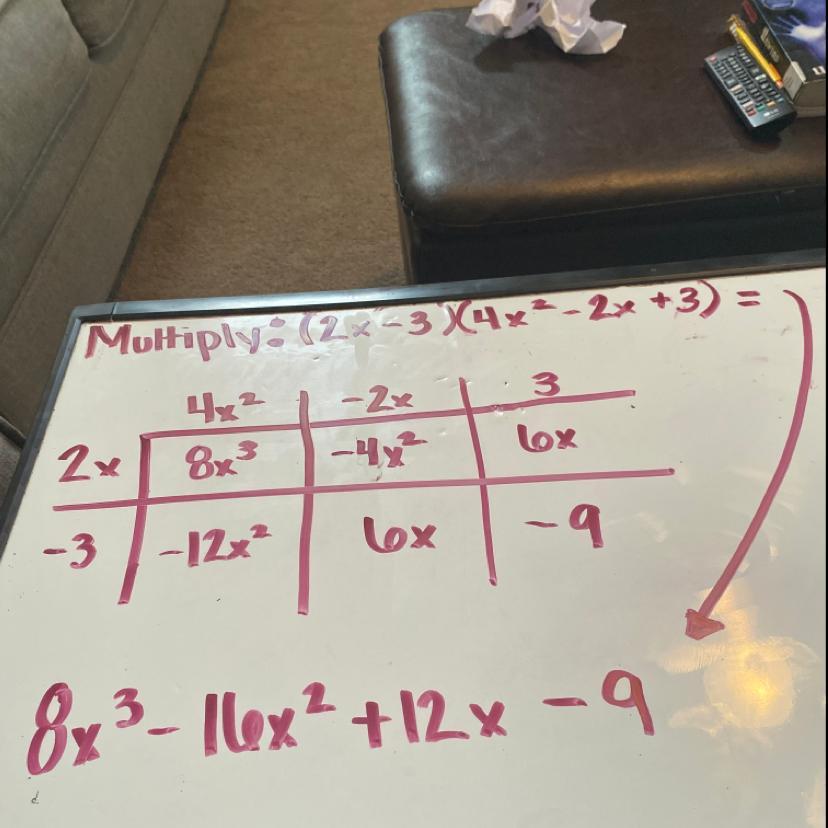 Multiply: (2x-3)(4x²-2x+3) =
4x² -2x 3
2x 8x³ -4x² 6x
-3 -12x² 6x -9
8x³ - 16x² + 12x - 9